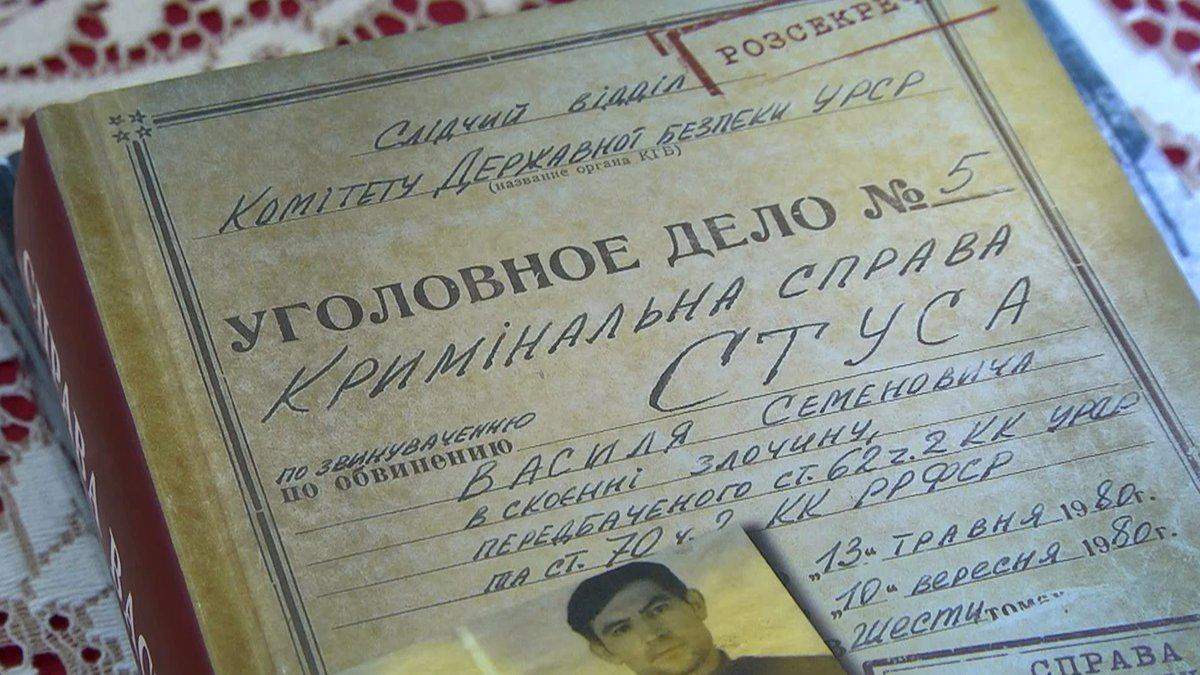 РОЗСЕКРЕЧ
Слідчий відділ
Комітету Державної безпеки УРСР
(название органа КГБ)
УГОЛОВНОЕ ДЕЛО № 5
КРИМІНАЛЬНА СПРАВА
СТУСА
по звинуваченню
по обвинению
ВАСИЛЯ СЕМЕНОВИЧА
в скоєнні злочину,
передбаченого ст. 62 ч. 2 КК УРСР
та ст. 70 ч. 2 КК РРФСР
„13“ травня 1980 г.
„10“ вересня 1980 г.
шести томах
СПРАВА
СПРАВА ВАС